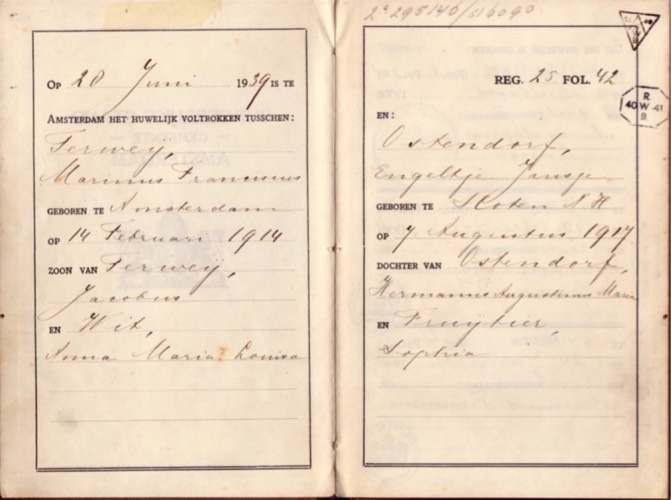 Op 20 Juni 1939 is te
Amsterdam het huwelijk voltrokken tusschen:
Terwey,
Marinus Franciscus
geboren te Amsterdam
op 14 Februari 1914
zoon van Terweij,
Jacobus
en Wit,
Anna Maria Louisa
2e 295146/516090
Reg. 25 Fol. 42
R.
40 W. 41
B.
en:
Ostendorf,
Engeltje Jansje
geboren te Sloten N H
op 7 Augustus 1917.
dochter van Ostendorf,
Hermanus Augustinus Maria
en Fruytier,
Sophia